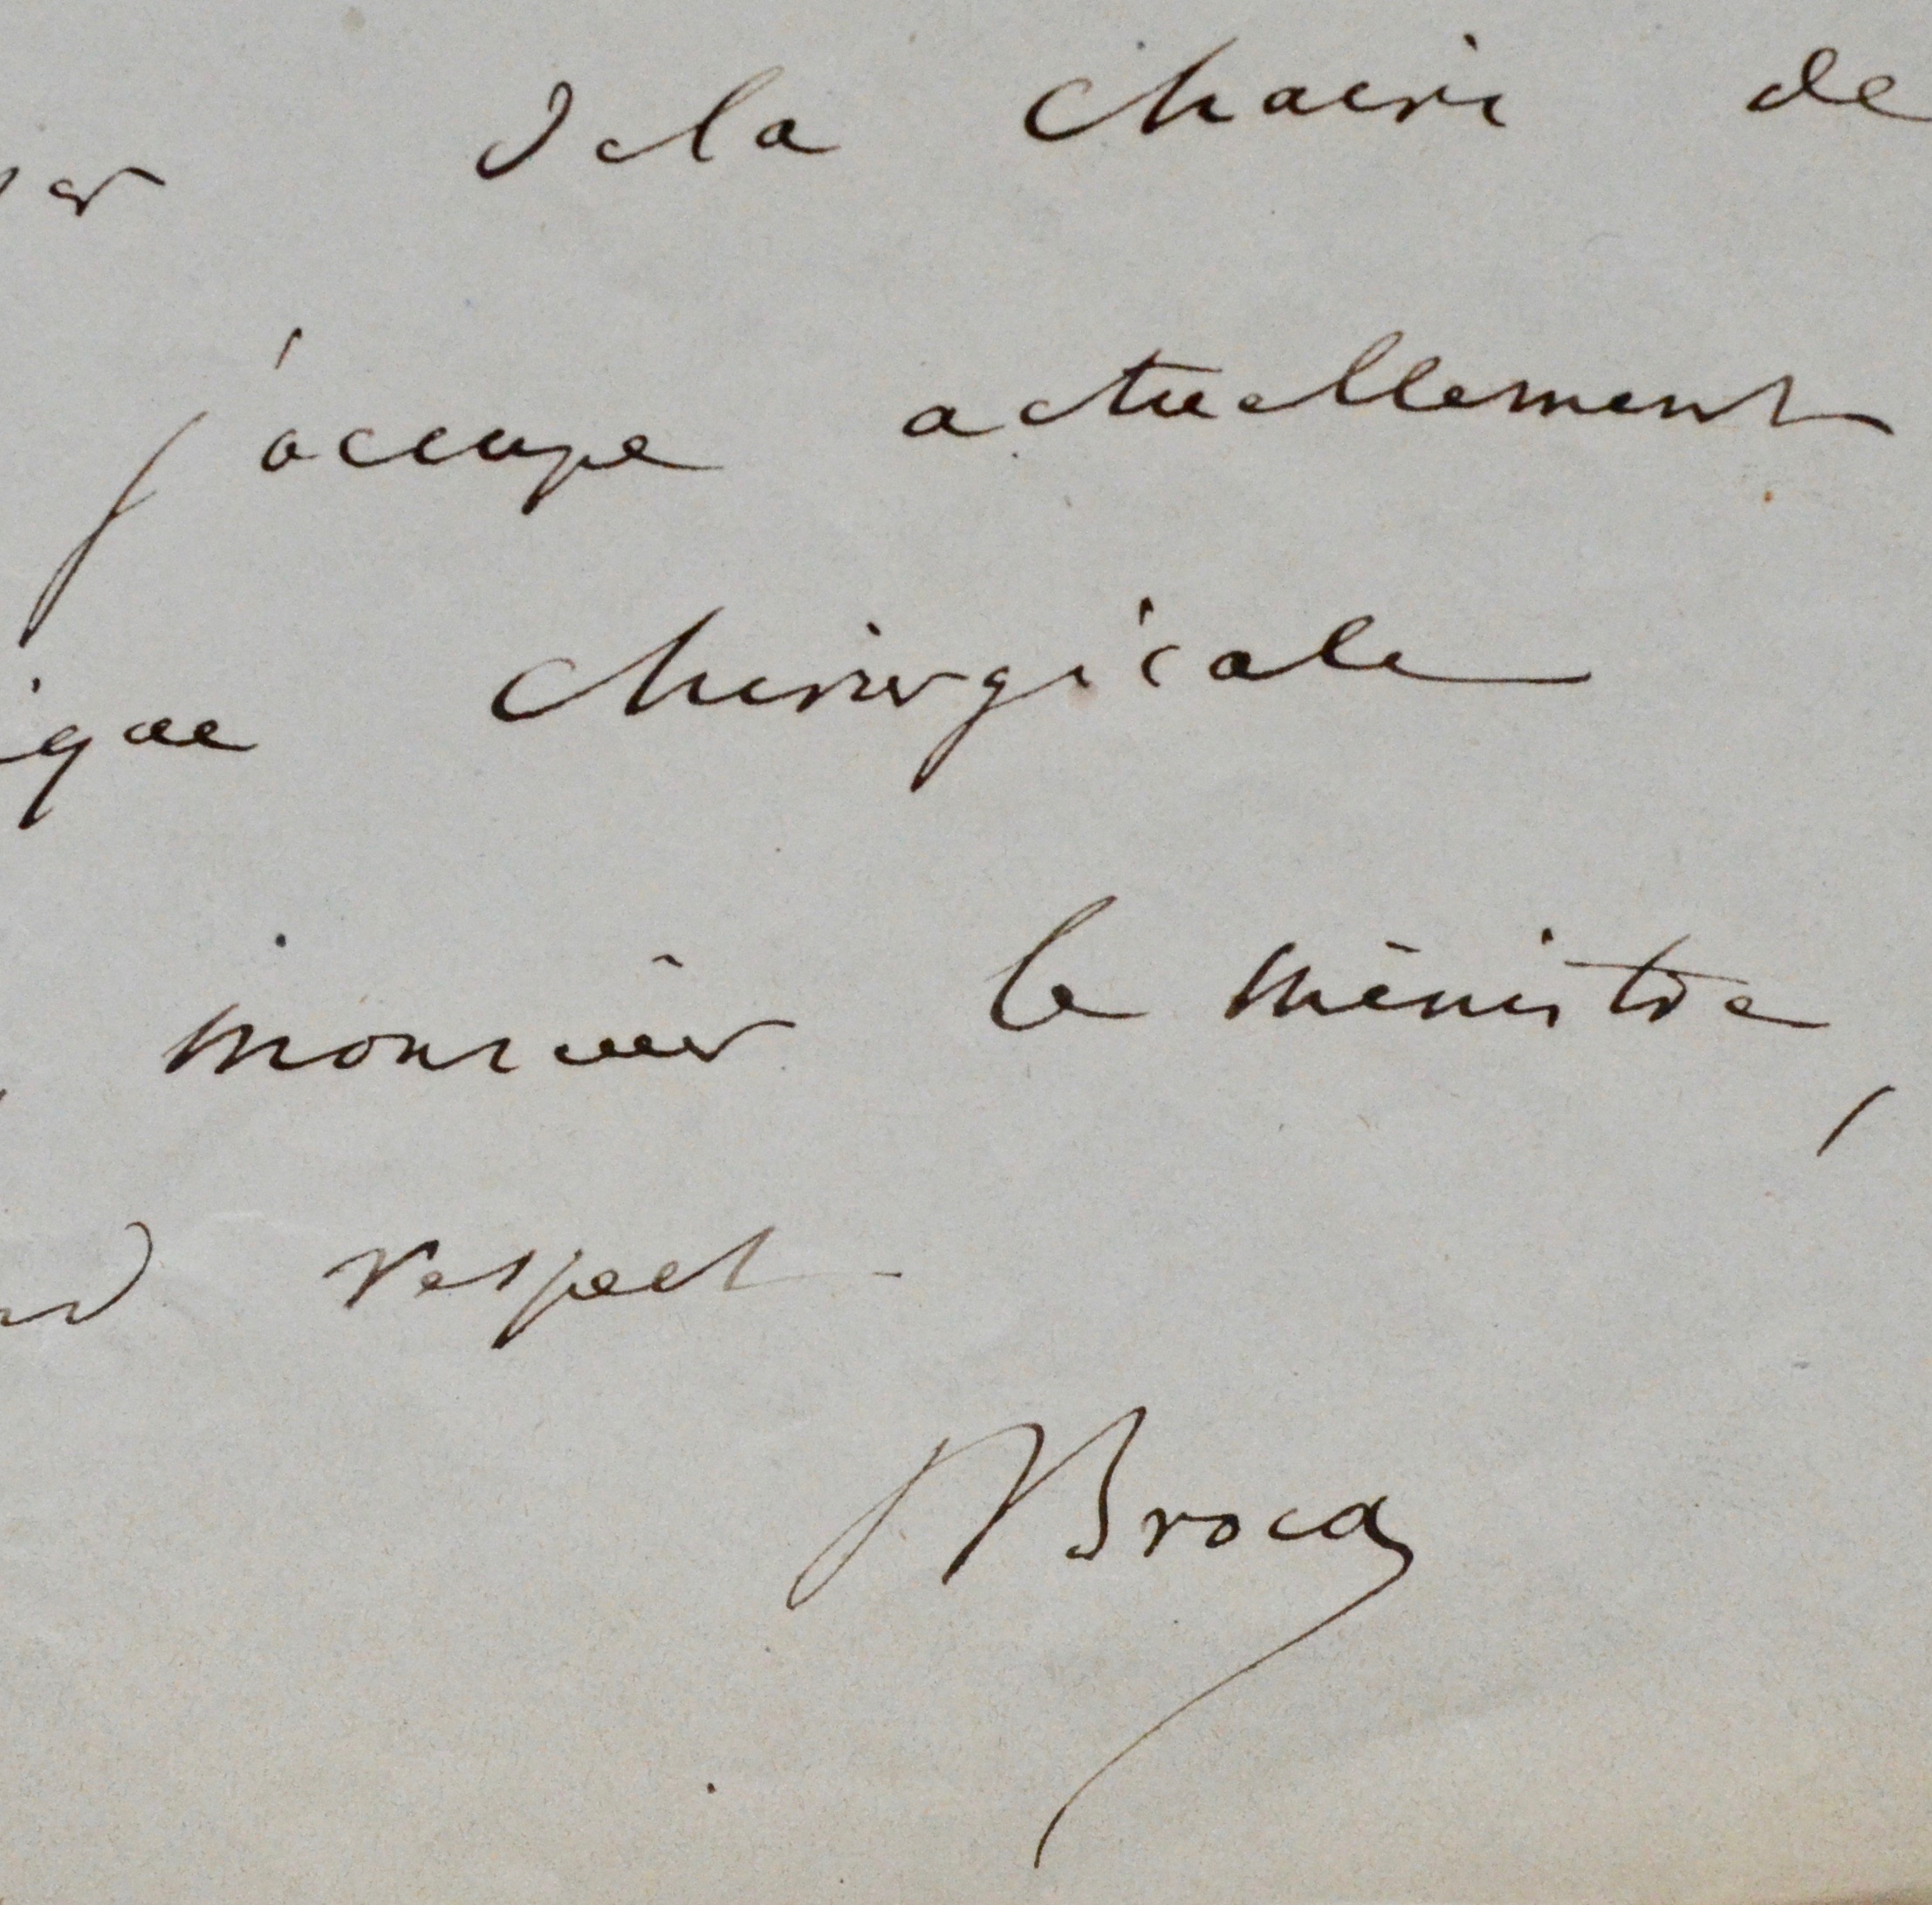 er de la chaire de
j'occupe actuellement
ique chirurgicale
monsieur le ministre,
nd respect
Broca